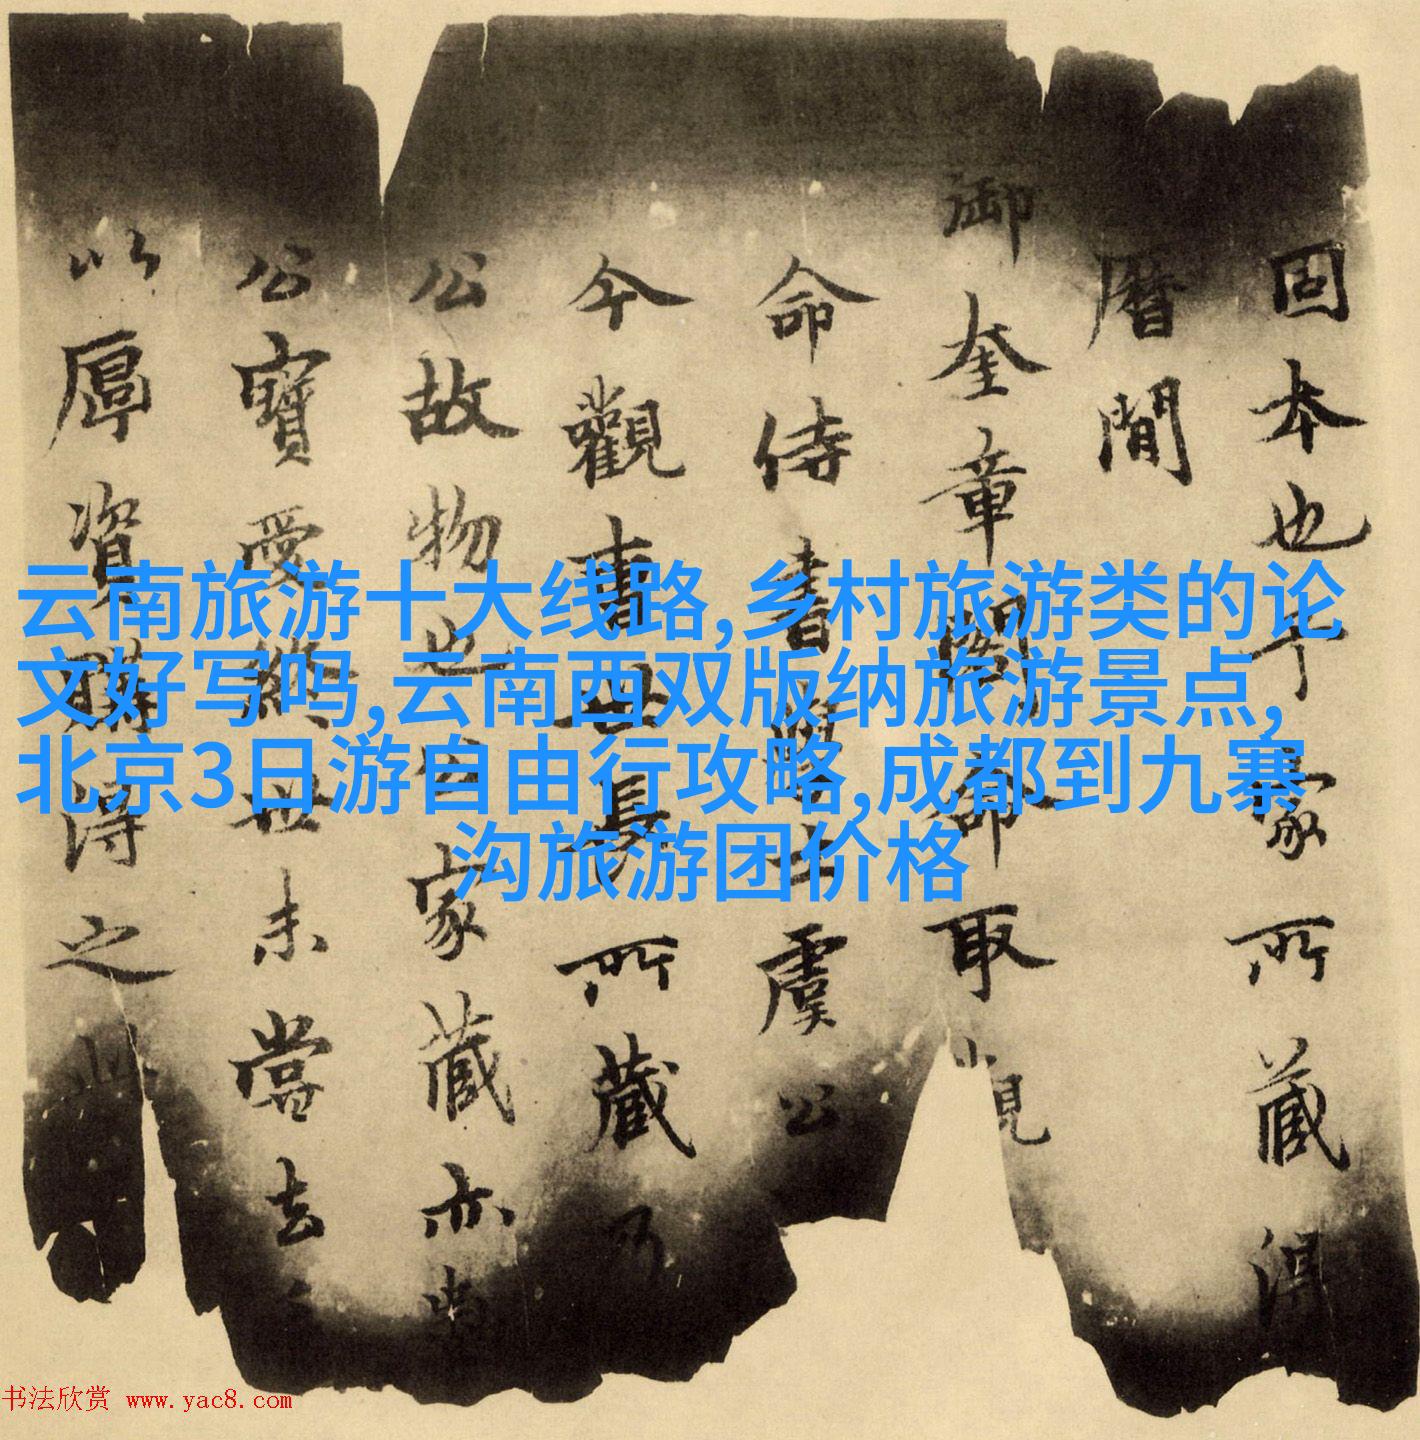 固本也予家所藏得
曆間
御奎章閣取
命侍書學士虞公
今觀書世長所藏乃
公故物也公家藏亦
公寶愛終世未嘗去
以厚資購得之
云南旅游十大线路,乡村旅游类的论
文好写吗,云南西双版纳旅游景点,
北京3日游自由行攻略,成都到九寨
沟旅游团价格
书法欣赏 www.yac8.com